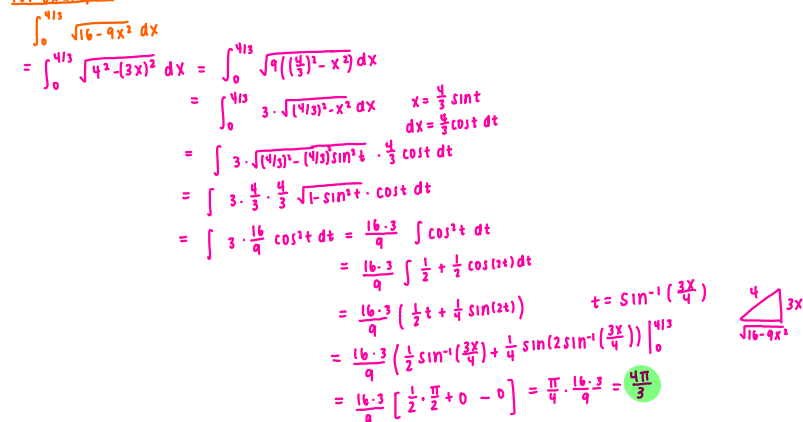 ∫₀^4/3 √(16-9x²) dx
= ∫₀^4/3 √(4²-(3x)²) dx = ∫₀^4/3 √(9((4/3)²-x²)) dx
= ∫₀^4/3 3·√((4/3)²-x²) dx x = 4/3 sint
dx = 4/3 cost dt
= ∫ 3·√((4/3)²-(4/3)²sin²t) · 4/3 cost dt
= ∫ 3·4/3·4/3 √(1-sin²t) · cost dt
= ∫ 3·16/9 cos²t dt = 16·3/9 ∫ cos²t dt
= 16·3/9 ∫ 1/2 + 1/2 cos(2t) dt
= 16·3/9 (1/2 t + 1/4 sin(2t)) t = sin⁻¹(3x/4) 4 3x √(16-9x²)
= 16·3/9 (1/2 sin⁻¹(3x/4) + 1/4 sin(2sin⁻¹(3x/4))) |₀^4/3
= 16·3/9 [1/2·π/2 + 0 - 0] = π/4 · 16·3/9 = 4π/3